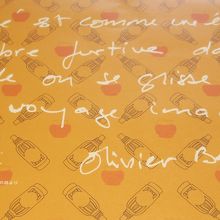 é est comme une
bre furtive de
on se glisse
voyage ima
Olivier B